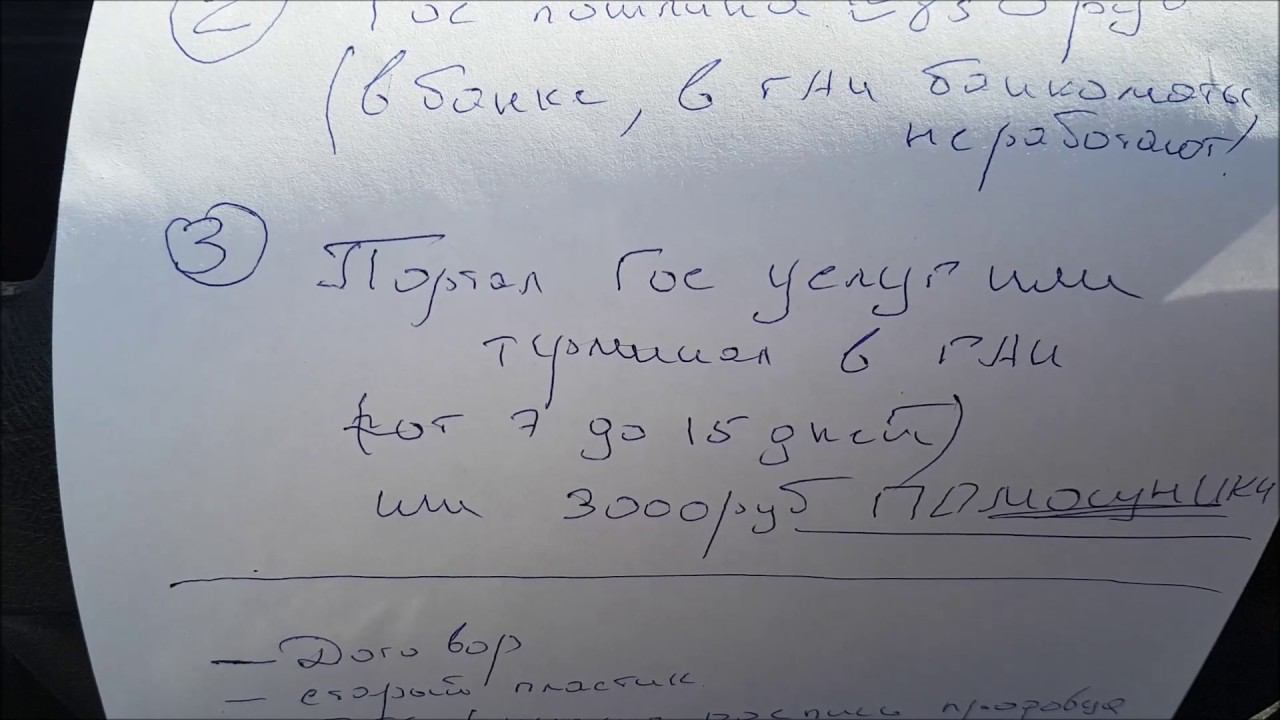 ② Гос пошлина 2850 руб
(в банке, в ГАИ банкоматы
не работают)
③ Портал Гос услуг или
терминал в ГАИ
(от 7 до 15 дней)
или 3000 руб
— Договор
— старый пластик
роспись